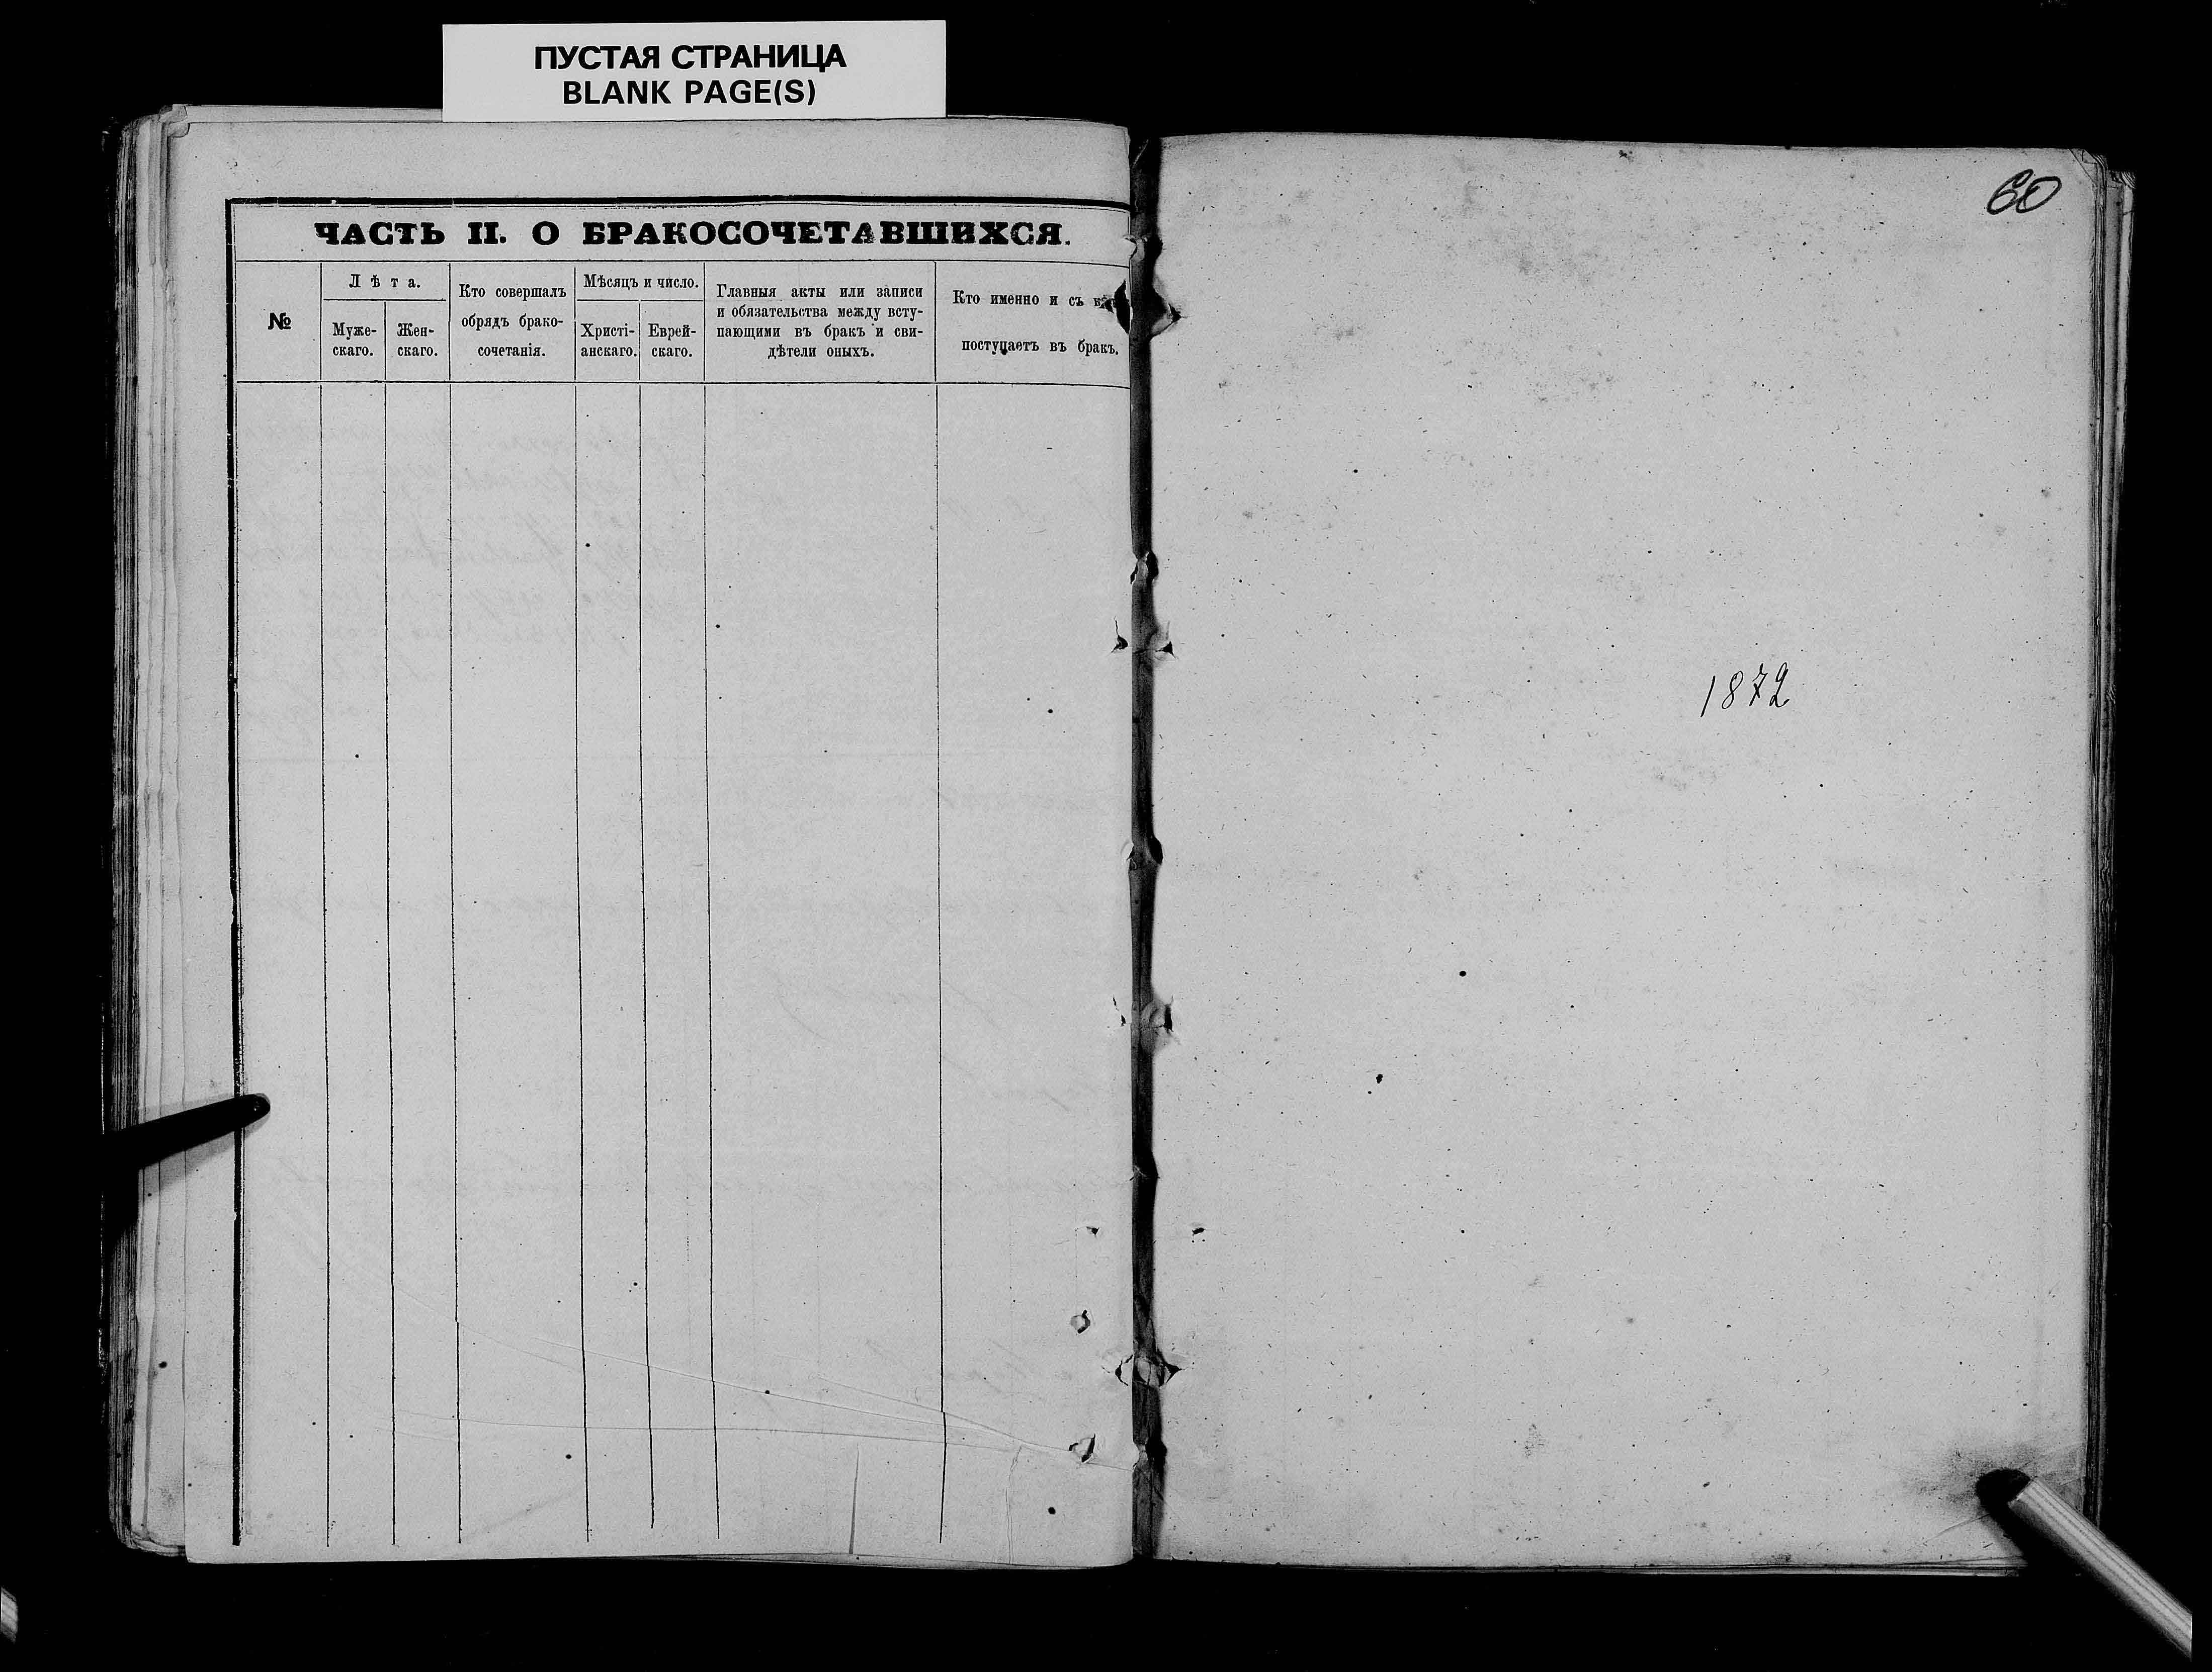 ПУСТАЯ СТРАНИЦА
BLANK PAGE(S)
ЧАСТЬ II. О БРАКОСОЧЕТАВШИХСЯ.
№
Лѣта.
Муже-
скаго.
Жен-
скаго.
Кто совершалъ
обрядъ брако-
сочетанія.
Мѣсяцъ и число.
Христі-
анскаго.
Еврей-
скаго.
Главныя акты или записи
и обязательства между всту-
пающими въ бракъ и сви-
дѣтели оныхъ.
Кто именно и съ
поступаетъ въ бракъ.
60
1872